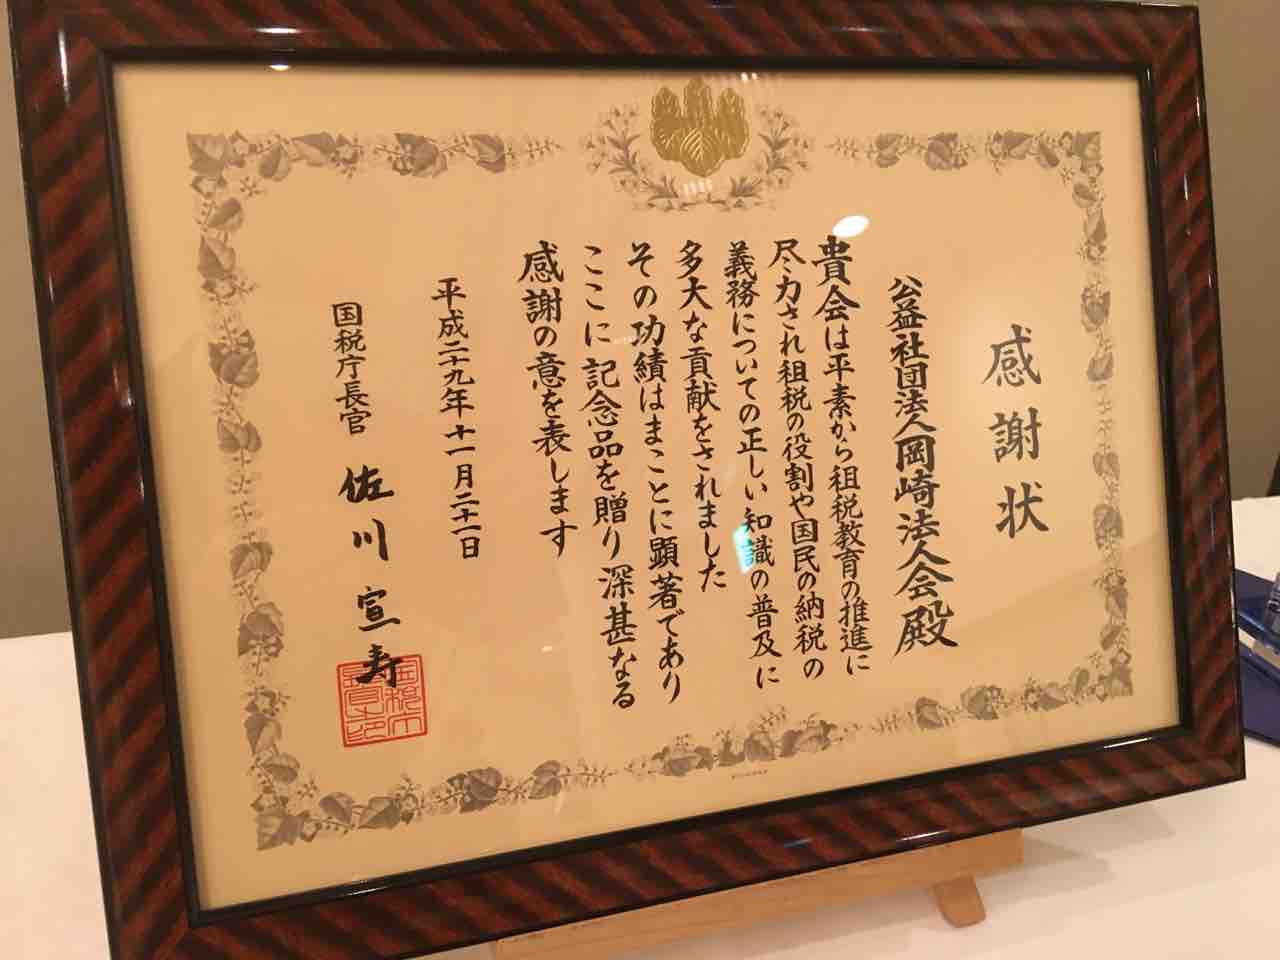 感謝状
公益社団法人岡崎法人会殿
貴会は平素から租税教育の推進に
尽力され租税の役割や国民の納税の
義務についての正しい知識の普及に
多大な貢献をされました
その功績はまことに顕著であり
ここに記念品を贈り深甚なる
感謝の意を表します
平成二十九年十一月二十一日
国税庁長官 佐川宣寿